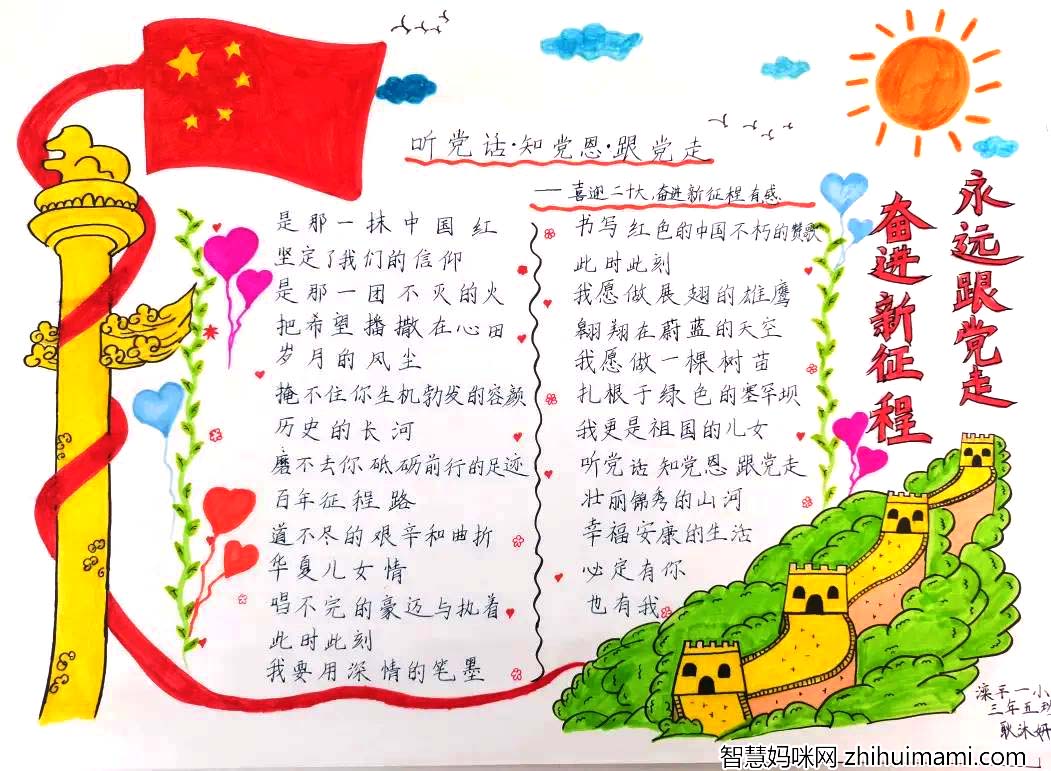 听党话·知党恩·跟党走
——喜迎二十大,奋进新征程有感
是那一抹中国红
坚定了我们的信仰
是那一团不灭的火
把希望播撒在心田
岁月的风尘
掩不住你生机勃发的容颜
历史的长河
磨不去你砥砺前行的足迹
百年征程路
道不尽的艰辛和曲折
华夏儿女情
唱不完的豪迈与执着
此时此刻
我要用深情的笔墨
书写红色的中国不朽的赞歌
此时此刻
我愿做展翅的雄鹰
翱翔在蔚蓝的天空
我愿做一棵树苗
扎根于绿色的塞罕坝
我更是祖国的儿女
听党话 知党恩 跟党走
壮丽锦秀的山河
幸福安康的生活
必定有你
也有我
永远跟党走
奋进新征程
滦平一小
三年五班
耿沐妍
智慧妈咪网 zhihuimami.com